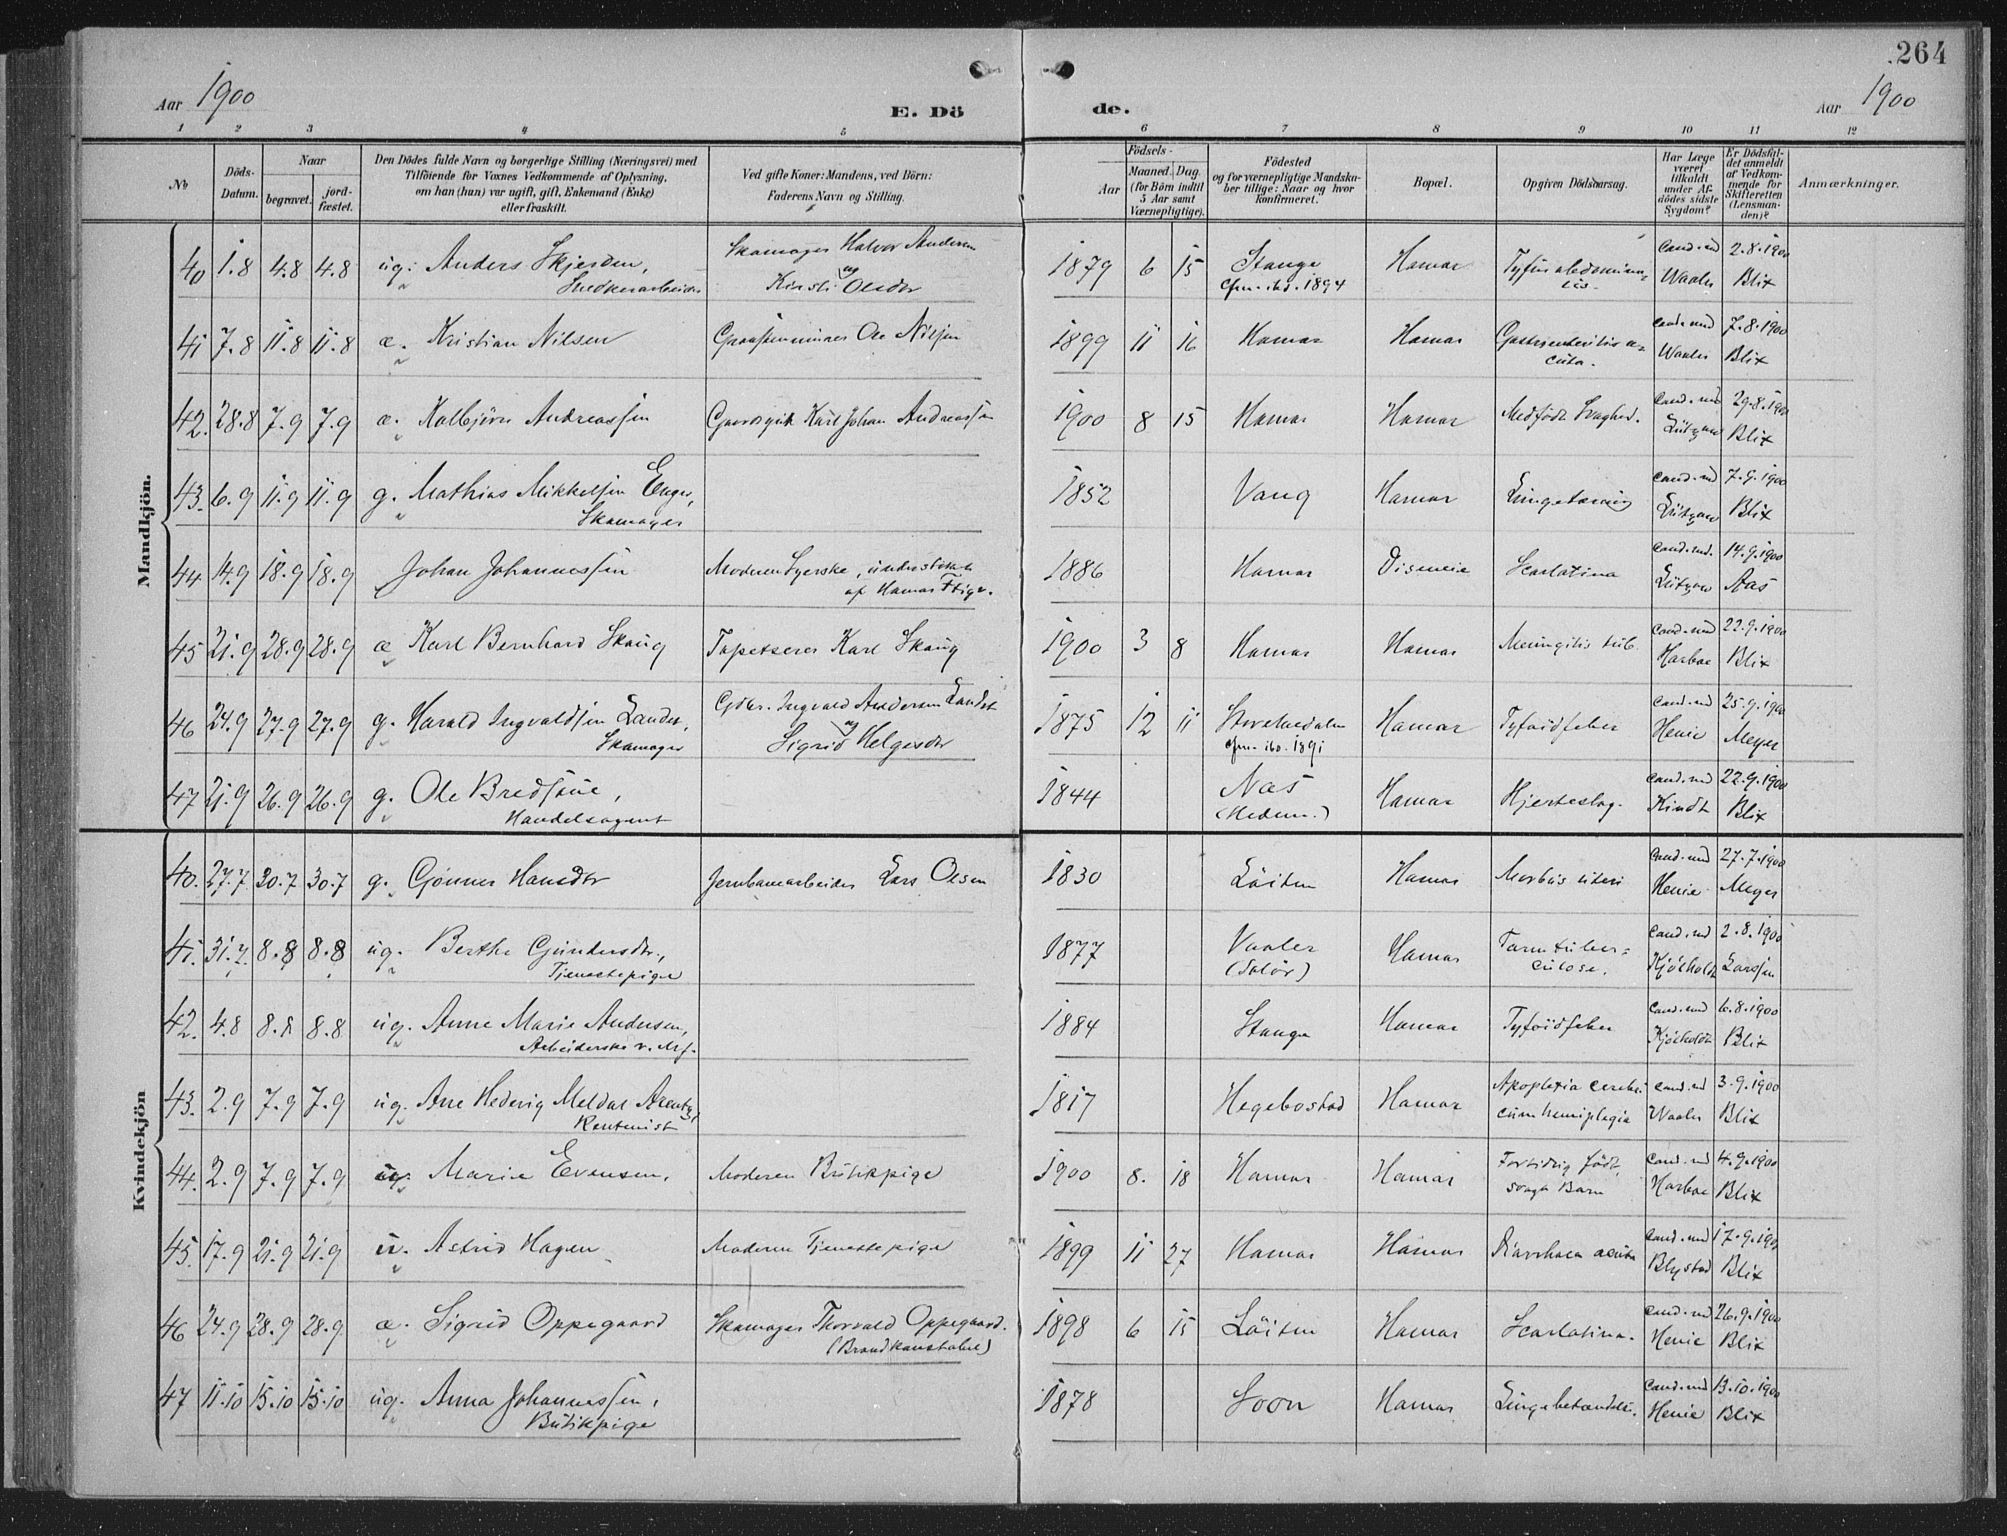 264
Aar 1900
E. Dö
de.
Aar 1900
1 2 3 4 5 6 7 8 9 10 11 12
No
Döds-
Datum.
Naar
begravet.
jord-
fæstet.
Den Dödes fulde Navn og borgerlige Stilling (Næringsvei) med
Tilföiende for Voxnes Vedkommende af Oplysning,
om han (hun) var ugift, gift, Enkemand (Enke)
eller fraskilt.
Ved gifte Koner: Mandens, ved Börn:
Faderens Navn og Stilling.
Födsels-
Aar
Maaned. Dag.
(for Börn indtil
5 Aar samt
Værnepligtige).
Födested
og for værnepligtige Mandska-
ber tillige: Naar og hvor
konfirmeret.
Bopæl.
Opgiven Dödsaarsag.
Har Læge
været
tilkaldt
under Af-
dödes sidste
Sygdom?
Er Dödsfal-
det anmeldt
af Vedkom-
mende for
Skifteretten
(Lensman-
den)?
Anmærkninger.
Mandkjön.
40 1.8 4.8 4.8 ug. Anders Skjerden, Skomager Halvor Andersen 1879 6 15 Stange Hamar Tyfus abdomina- cand. med 2.8.1900
Snedkerarbeider og Kirsti Olsdtr cfm. ibd. 1894 lis. Waaler Blix
41 7.8 11.8 11.8 æ. Kristian Nilsen Ole Nilsen 1899 11 16 Hamar Hamar Gastroenteritis a- cand. med 7.8.1900
cuta. Waaler Blix
42. 28.8 7.9 7.9 æ. Kolbjörn Andreassen Karl Johan Andreassen 1900 8 15 Hamar Hamar Medfödt Svaghed. cand. med 29.8.1900
Lützow Blix
43. 6.9 11.9 11.9 g. Mathias Mikkelsen Enger, 1852 Vang Hamar Lungetæring cand. med 7.9.1900
Skomager Lützow Blix
44 14.9 18.9 18.9 Johan Johannessen Moderen Syerske, understöttet 1886 Hamar Disenæie Scarlatina cand. med. 14.9.1900
af Hamar Ftigv. Lützow Aas
45 21.9 28.9 28.9 æ Karl Bernhard Skaug Tapetserer Karl Skaug 1900 3 8 Hamar Hamar Meningitis tub. cand. med 22.9.1900
Harboe Blix
46 24.9 27.9 27.9 g. Harald Ingvaldsen Landet, Gdbr. Ingvald Andersen Landet 1875 12 11 Storelvedalen Hamar Tyfoidfeber cand. med 25.9.1900
Skomager og Sigrid Helgesdtr cfm. ibd. 1891 Henie Meyer
47 21.9 26.9 26.9 g. Ole Bredsine, 1844 Næs Hamar Hjerteslag. cand. med 22.9.1900
Handelsagent (Hedem.) Kindt Blix
Kvindekjön
40. 27.7 30.7 30.7 g. Gjönner Hansdtr Jernbanearbeider Lars Olsen 1830 Löiten Hamar Morbus uteri cand. med 27.7.1900
Henie Meyer
41. 31.7. 8.8 8.8 ug. Berthe Gundersdtr, 1877 Vaaler Hamar Tarmtuber- cand. med 2.8.1900
Tjenestepige (Solör) culose. Kjölholdt Larssen
42. 4.8 8.8 8.8 ug. Anne Marie Andersen, 1884 Stange Hamar Tyfoidfeber cand. med 6.8.1900
Arbeiderske v. Kjölholdt Blix
43. 2.9 7.9 7.9 ug. Ane Hedevig Meldal Arentz, 1817 Hegebostad Hamar Apoplexia cerebri cand. med 3.9.1900
Rentenist cum hemiplegia Waaler Blix
44. 2.9 7.9 7.9 u. Marie Evensen, Moderen Butikpige 1900 8. 18 Hamar Hamar Fortidlig födt, cand. med 4.9.1900
svagt Barn Harboe Blix
45. 17.9 21.9 21.9 u. Astrid Hagen Moderen Tjenestepige 1899 11 27 Hamar Hamar Diarrhoea acuta cand. med 17.9.1900
Blystad Blix
46 24.9 28.9 28.9. æ. Sigrid Oppegaard Skomager Thorvald Oppegaard. 1898 6 15 Löiten Hamar Scarlatina. cand. med 26.9.1900
(Brandkonstabel) Henie Blix
47 11.10 15.10 15.10 ug. Anna Johannessen, 1878 Soon Hamar Lungebetændelse. cand. med 13.10.1900
Butikpige Henie Blix